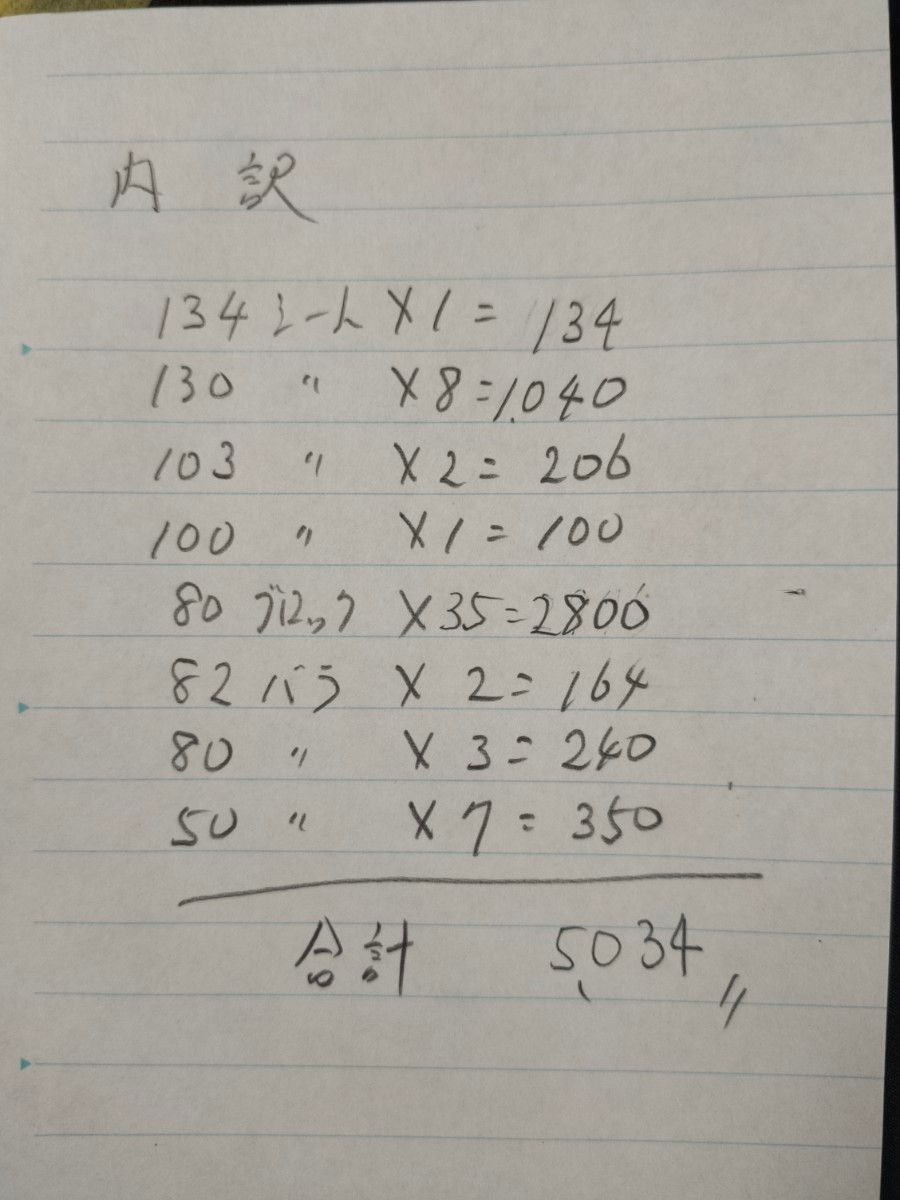 内 訳
134 シート × 1 = 134
130 〃 × 8 = 1,040
103 〃 × 2 = 206
100 〃 × 1 = 100
80 ブロック × 35 = 2800
82 バラ × 2 = 164
80 〃 × 3 = 240
50 〃 × 7 = 350
合計 5,034〃